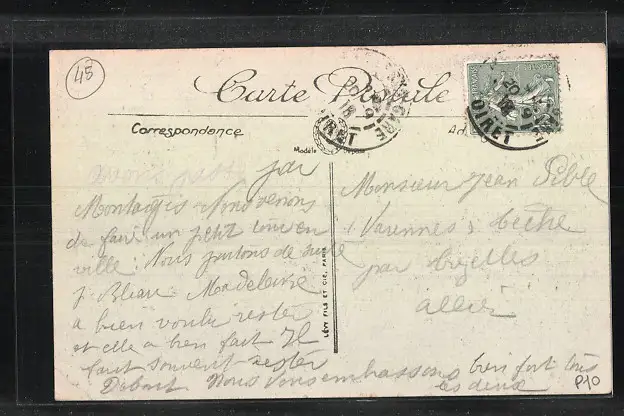 45
Carte Postale
Correspondance
par
Montargis. Nous venons
de faire un petit tour en
ville. Nous partons de suite
p. Bléau Madeleine
a bien voulu rester
et elle a bien fait Il
faut souvent rester
Debout Nous vous embrassons bien fort tous
les deux
LÉVY FILS ET CIE, PARIS
Monsieur Jean
Varennes s/ Tèche
par
Allier
P10